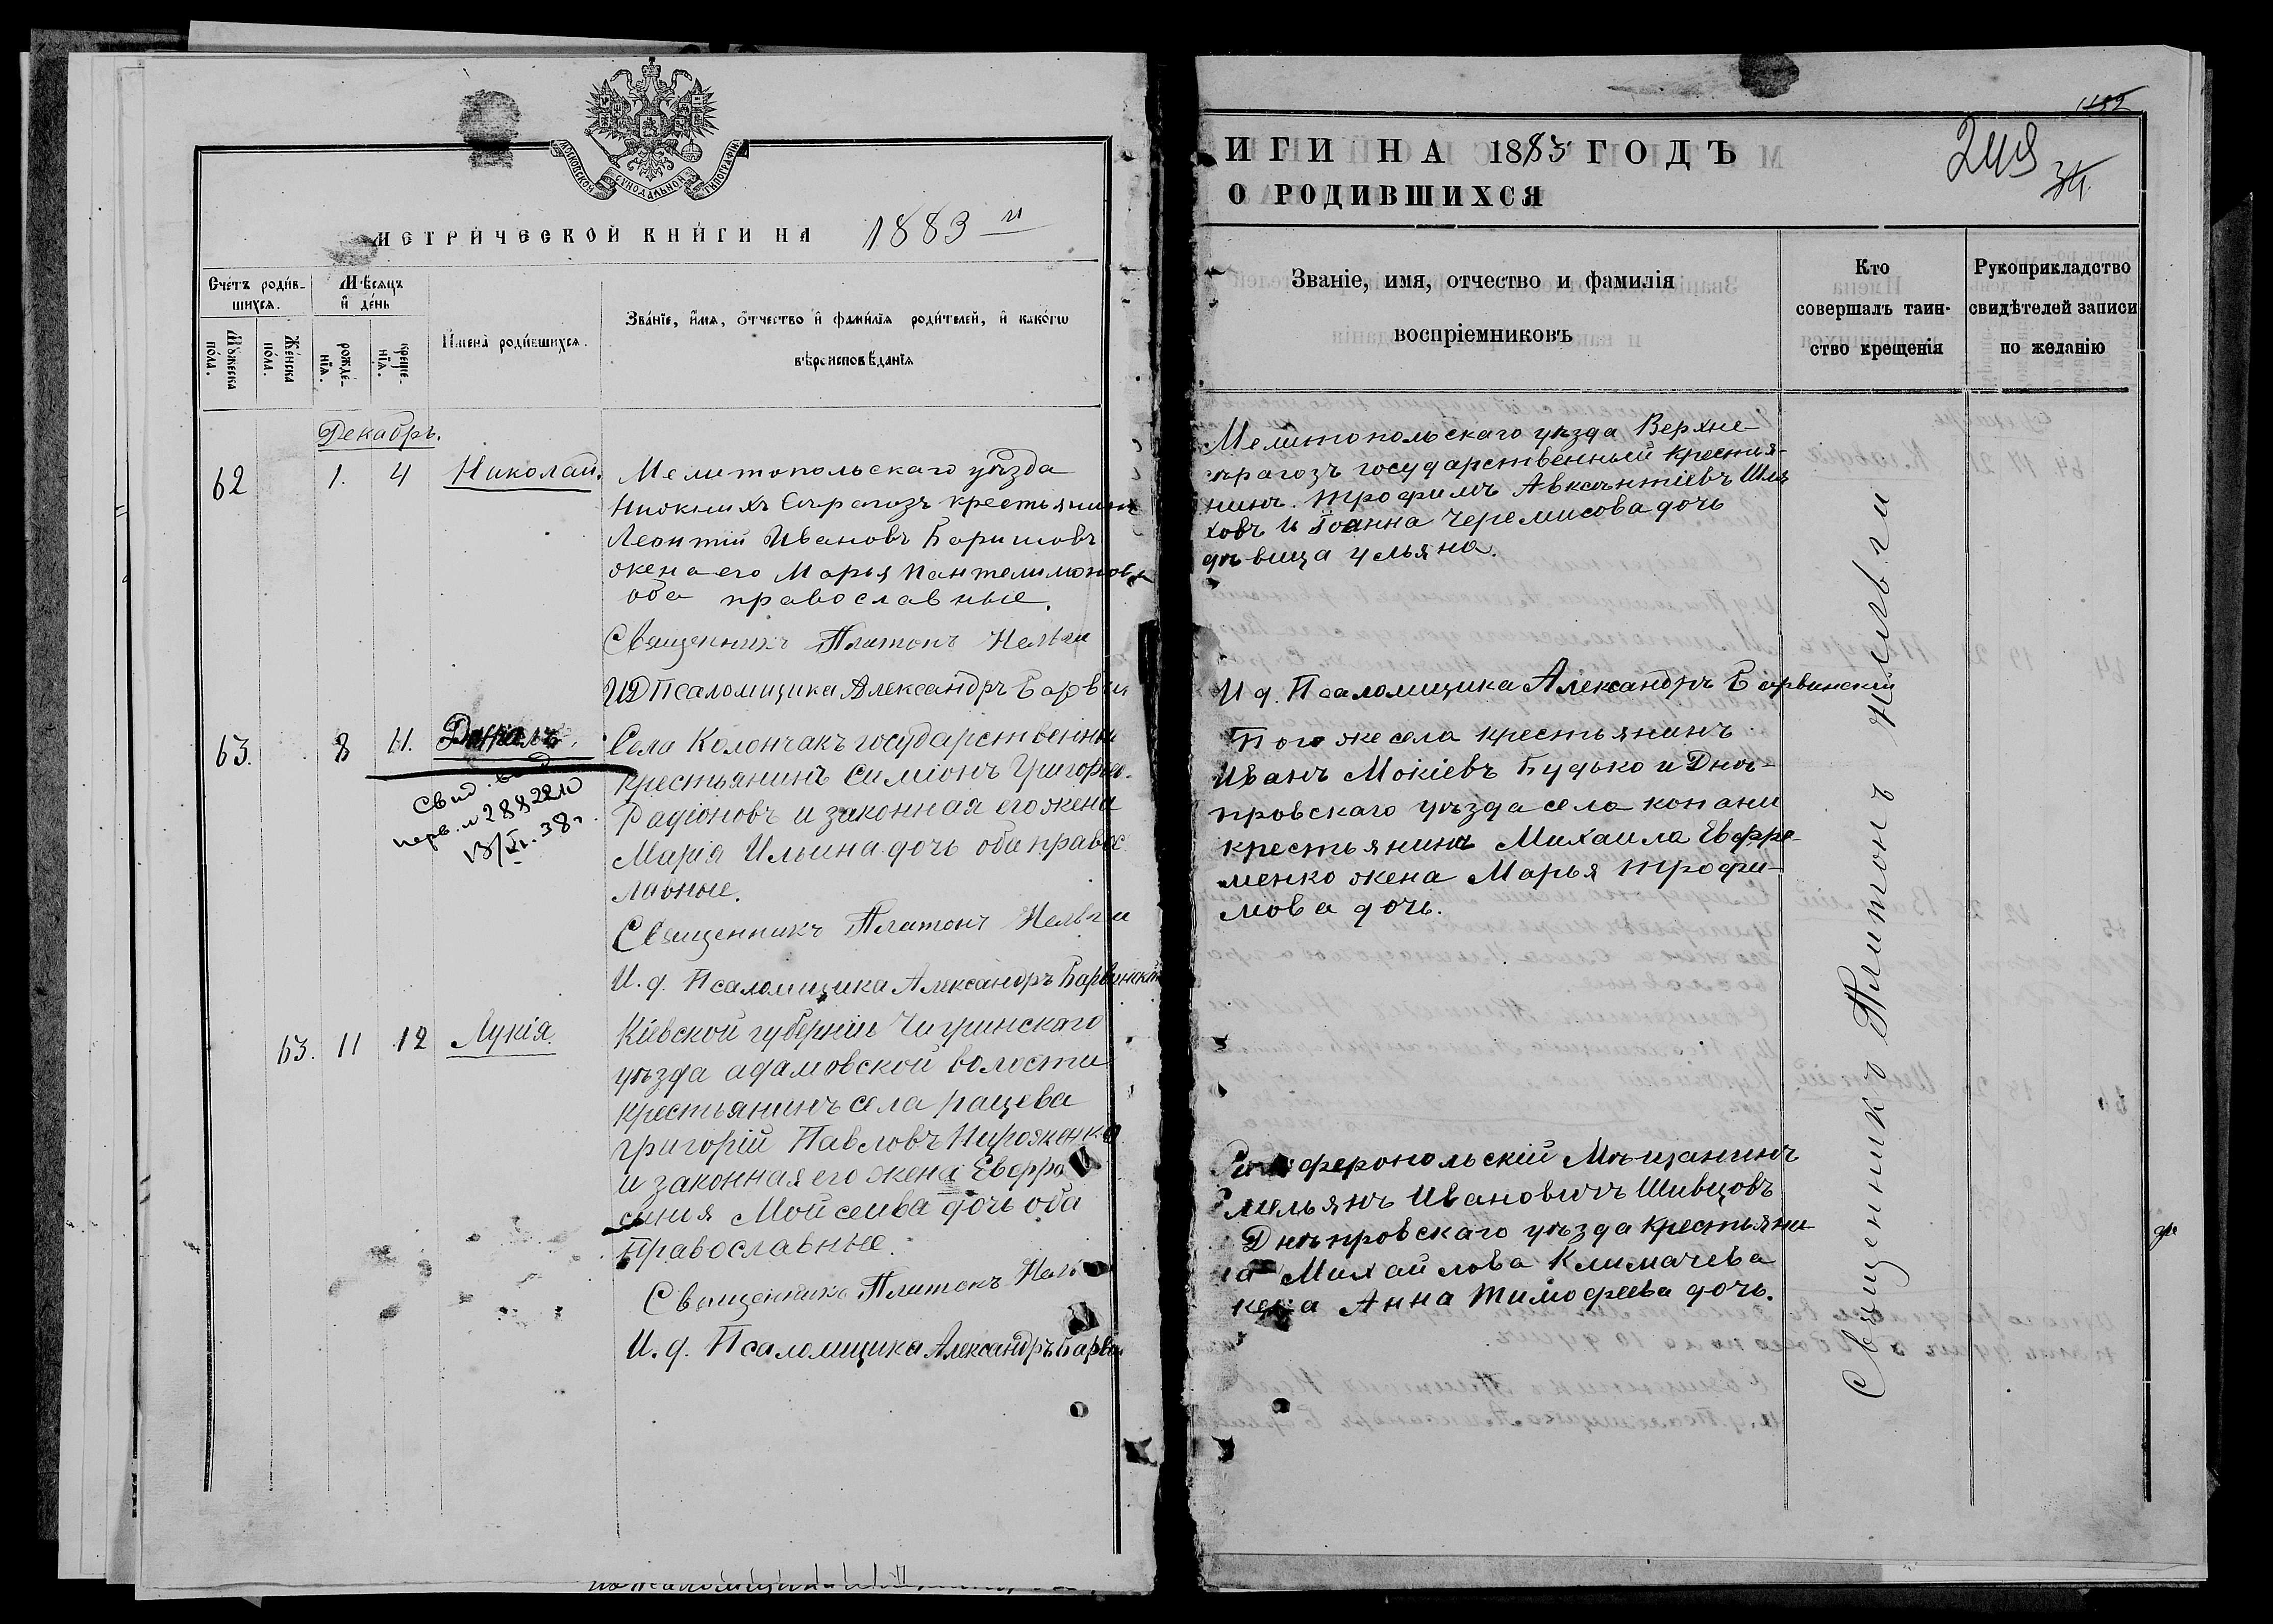 МОСКОВСКОЙ СѴНОДАЛЬНОЙ ТИПОГРАФІИ
МЕТРИЧЕСКОЙ КНИГИ НА 1883 й
Счетъ родив-
шихся.
Мѣсяцъ
и день
Мужеска
пола.
Женска
пола.
рожде-
нія.
креще-
нія.
Имена родившихся.
Званіе, имя, отчество и фамилія родителей, и какогѡ
вѣроисповѣданія
Декабрь.
62 1. 4 Николай.
Мелитопольскаго уѣзда
Нижнихъ Сѣрагозъ крестьянинъ
Леонтій Ивановъ
жена его Марья Пантелимонова
оба православные.
Священникъ Платонъ
ИД Псаломщика Александръ Барвин
63. 8 11. Данiилъ.
Свид.
перв. № 288
13/XI. 38 г.
Села Колончакъ государственны
крестьянинъ Симіонъ Григорьев.
Радіоновъ и законная его жена
Марія Ильина дочь оба правос
лавные.
Священникъ Платонъ
И. д. Псаломщика Александръ Барвинскій
63. 11 12 Лукія.
Кіевской губерніи Чигринскаго
уѣзда адамовской волости
крестьянинъ села рацева
григорій Павловъ
и законная его жена Евфро
синия Мойсеива дочь оба
Православные.
Священникъ Платонъ
И. д. Псаломщика Александръ Барви
ИГИ НА 1883 ГОДЪ
О РОДИВШИХСЯ
249
34.
Званіе, имя, отчество и фамилія
воспріемниковъ
Кто
совершалъ таин-
ство крещенія
Рукоприкладство
свидѣтелей записи
по желанію
Мелитопольскаго уѣзда Верхне-
сѣрагозъ государственный крестья-
нинъ. Трофимъ Авксѣнтіевъ Шля
ховъ и Іоанна Черемисова дочь
дѣвица ульяна.
И д. Псаломщика Александръ Барвинскій
Того же села крестьянинъ
Иванъ Мокіевъ Будько и Днѣ-
провскаго уѣзда села копани
крестьянина Михаила Евфре-
менко жена Марья Трофи-
мова дочь.
Симферопольскій Мѣщанинъ
Емельянъ Ивановичъ Шивцовъ
Днѣпровскаго уѣзда крестьяни
на Михайлова Климачева
жена Анна Тимофеева дочь.
Священникъ Платонъ